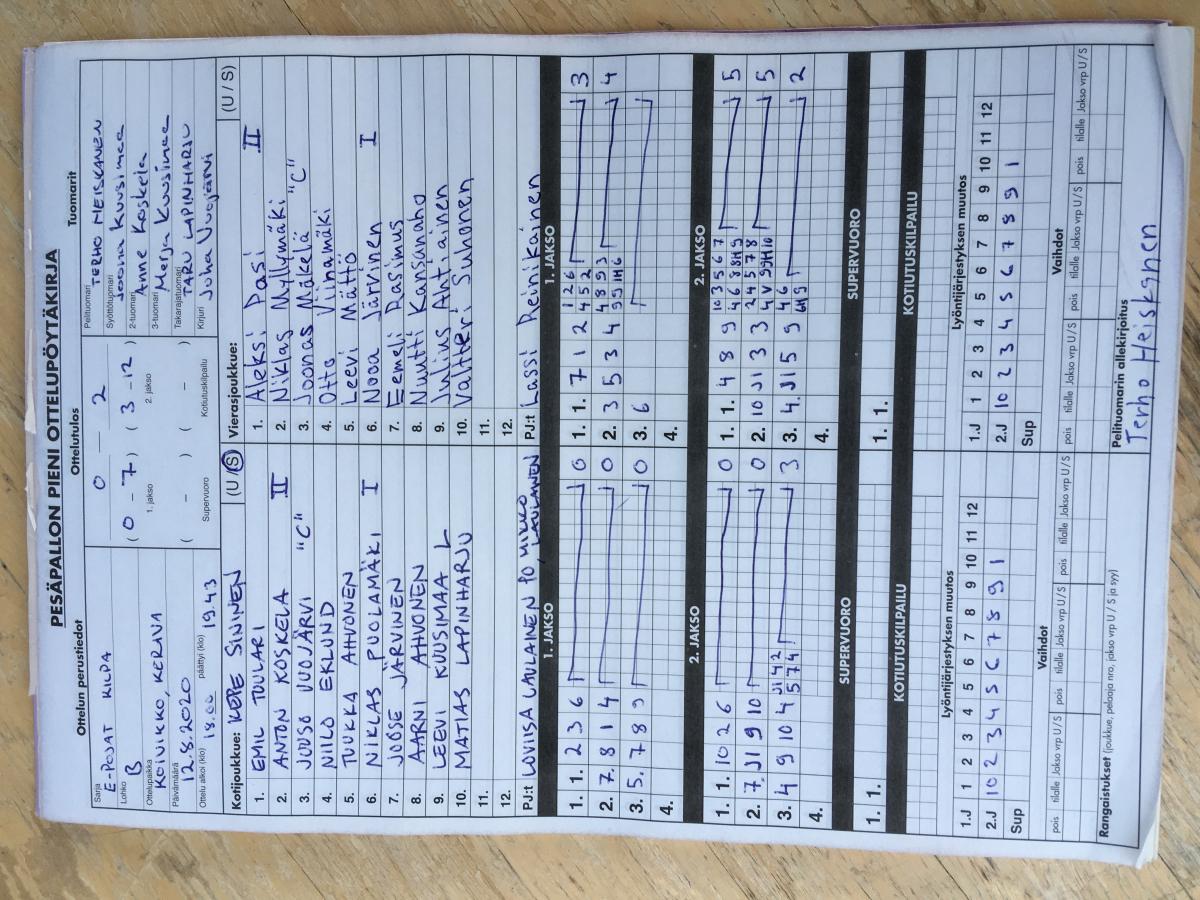 PESÄPALLON PIENI OTTELUPÖYTÄKIRJA
Ottelun perustiedot
Sarja
E-POJAT KILPA
Lohko
B
Ottelupaikka
KOIVIKKO, KERAVA
Päivämäärä
12.8.2020
Ottelu alkoi (klo) 18.00 päättyi (klo) 19.43
Ottelutulos
0 — 2
(0 - 7) (3 - 12)
1. jakso 2. jakso
( - ) ( - )
Supervuoro Kotiutuskilpailu
Tuomarit
Pelituomari TERHO HEISKANEN
Syöttötuomari Joona Kuusimaa
2-tuomari Anne Koskela
3-tuomari Merja Kuusimaa
Takarajatuomari TARU LAPINHARJU
Kirjuri Juha Vuojärvi
Kotijoukkue: KEPE SININEN (U/S)
1. EMIL TOULARI
2. ANTON KOSKELA II
3. JUUSO VUOJÄRVI "C"
4. NIILO EKLUND
5. TUKKA AHVONEN
6. NIKLAS PUOLAMÄKI I
7. JOOSE JÄRVINEN
8. AARNI AHVONEN
9. LEEVI KUUSIMAA L
10. MATIAS LAPINHARJU
11.
12.
PJ:t LOVIISA LAULAINEN PO MIKKO LAULAINEN
Vierasjoukkue: (U / S)
1. Aleksi Pasi II
2. Niklas Myllymäki
3. Joonas Mäkelä "C"
4. Otto Viinamäki
5. Leevi Mättö
6. Nooa Järvinen I
7. Eemeli Rasimus
8. Nuutti Kansanaho
9. Julius Antiainen
10. Valtteri Suhonen
11.
12.
PJ:t Lassi Reinikainen
1. JAKSO
1. 1. 2 3 6 0
2. 7. 8 1 4 0
3. 5. 7 8 9 0
4.
1. JAKSO
1. 1. 7 1 2 1 2 6 4 5 2 3
2. 3 5 3 4 4 8 9 3 9 9 1H6 4
3. 6
4.
2. JAKSO
1. 1. 10 2 6 0
2. 7. J1 9 10 0
3. 4 9 10 4 J1 4 2 5 7 4 3
4.
2. JAKSO
1. 1. 4 8 9 10 3 5 6 7 4 6 8 8H9 5
2. 10 J1 3 3 2 4 5 7 8 4 V 9 9H10 5
3. 4. J1 5 9 4 6 6H9 2
4.
SUPERVUORO
1. 1.
SUPERVUORO
1. 1.
KOTIUTUSKILPAILU
KOTIUTUSKILPAILU
Lyöntijärjestyksen muutos
1.J 1 2 3 4 5 6 7 8 9 10 11 12
2.J 10 2 3 4 5 6 7 8 9 1
Sup
Lyöntijärjestyksen muutos
1.J 1 2 3 4 5 6 7 8 9 10 11 12
2.J 10 2 3 4 5 6 7 8 9 1
Sup
Vaihdot
pois tilalle Jakso vrp U / S pois tilalle Jakso vrp U / S pois tilalle Jakso vrp U / S
Vaihdot
pois tilalle Jakso vrp U / S pois tilalle Jakso vrp U / S pois tilalle Jakso vrp U / S
Rangaistukset (joukkue, pelaaja nro, jakso vrp U / S ja syy)
Pelituomarin allekirjoitus
Terho Heiskanen